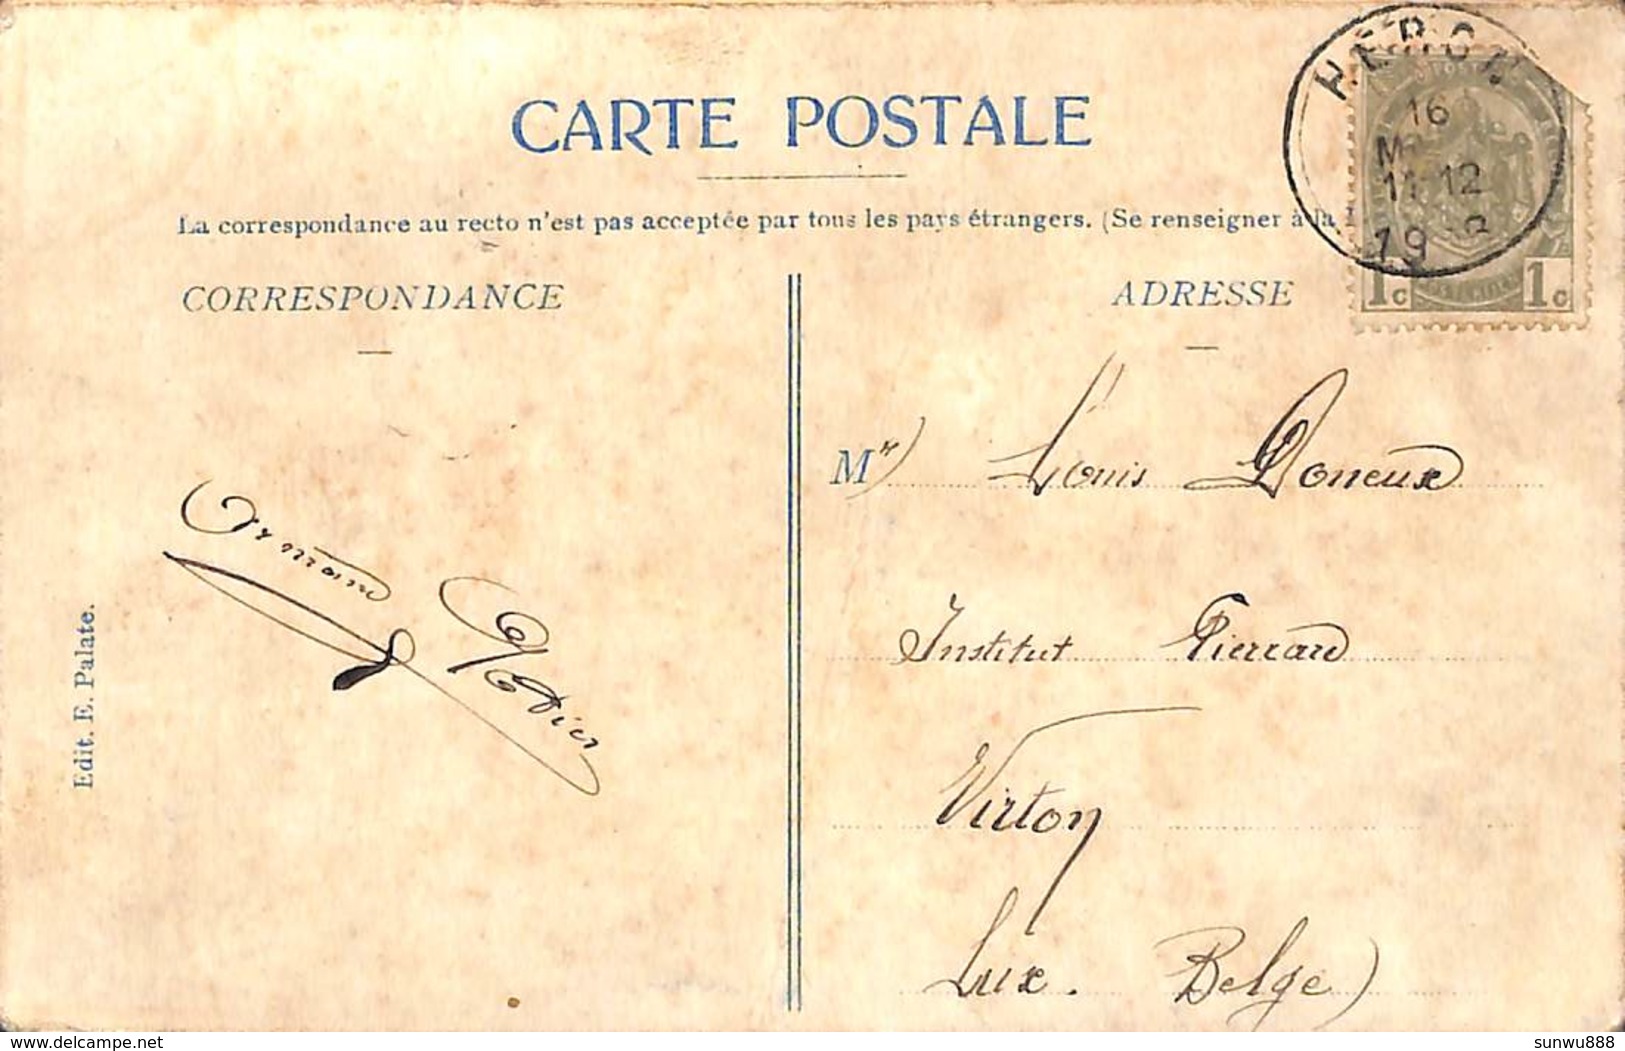 HERON
16
11-12
19
CARTE POSTALE
La correspondance au recto n'est pas acceptée par tous les pays étrangers. (Se renseigner à la
CORRESPONDANCE
ADRESSE
1c 1c
Mr Louis Doneux
Institut Pierrard
Virton
Lux. Belge)
Armand
Edit. E. Palate.
delcampe.net
sunwu888